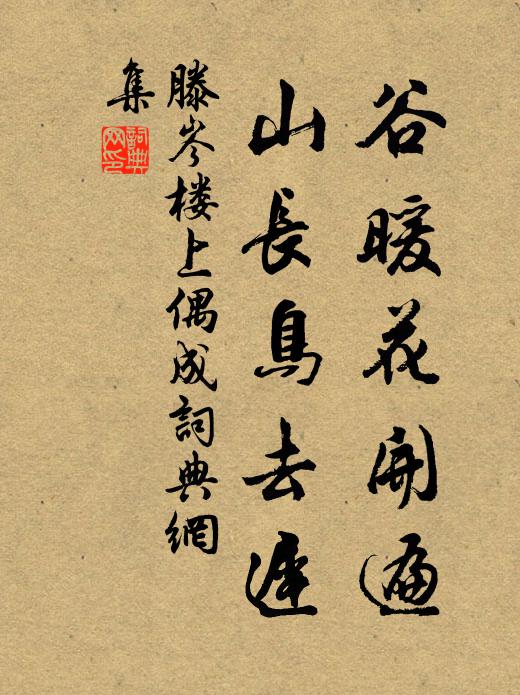 谷暖花開遍
山長鳥去遲
滕岑楼上偶成詞典網
集
詞典
网印